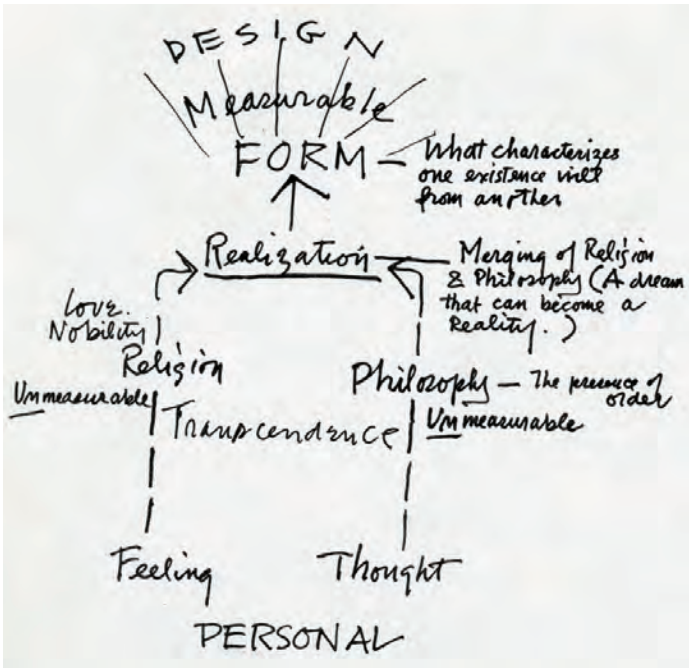 DESIGN
Measurable
FORM — What characterizes
one existence will
from another
Realization — Merging of Religion
& Philosophy (A dream
that can become a
Reality.)
Love.
Nobility
Religion
Philosophy — The presence of
order
Unmeasurable
Transcendence
Unmeasurable
Feeling
Thought
PERSONAL